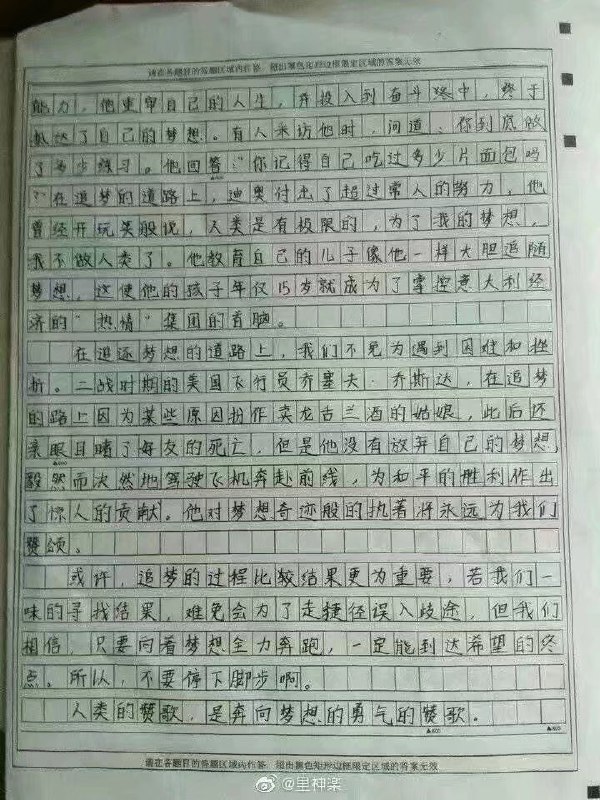 请在各题目的答题区域内作答，超出黑色矩形边框限定区域的答案无效
能力，他重审自己的人生，并投入到奋斗终中，终于
抵达了自己的梦想。有人采访他时，问道：你到底做
了多少练习。他回答：“你记得自己吃过多少片面包吗
？”在追梦的道路上，迪奥付出了超过常人的努力，他
曾经开玩笑般说，人类是有极限的，为了我的梦想，
我不做人类了。他教育自己的儿子像他一样大胆追随
梦想，这使他的孩子年仅15岁就成为了掌控意大利经
济的“热情”集团的首脑。
在追逐梦想的道路上，我们不免为遇到困难和挫
折。二战时期的美国飞行员乔塞夫·乔斯达，在追梦
的路上因为某些原因扮作卖龙舌兰酒的姑娘，此后还
亲眼目睹了好友的死亡，但是他没有放弃自己的梦想
▲600
毅然而决然地驾驶飞机奔赴前线，为和平的胜利作出
了惊人的贡献。他对梦想奇迹般的执著将永远为我们
赞颂。
或许，追梦的过程比较结果更为重要，若我们一
味的寻找结果，难免会为了走捷径误入歧途，但我们
相信，只要向着梦想全力奔跑，一定能到达希望的终
点。所以，不要停下脚步啊。
人类的赞歌，是奔向梦想的勇气的赞歌。
▲800
请在各题目的答题区域内作答，超出黑色矩形边框限定区域的答案无效
@里神楽